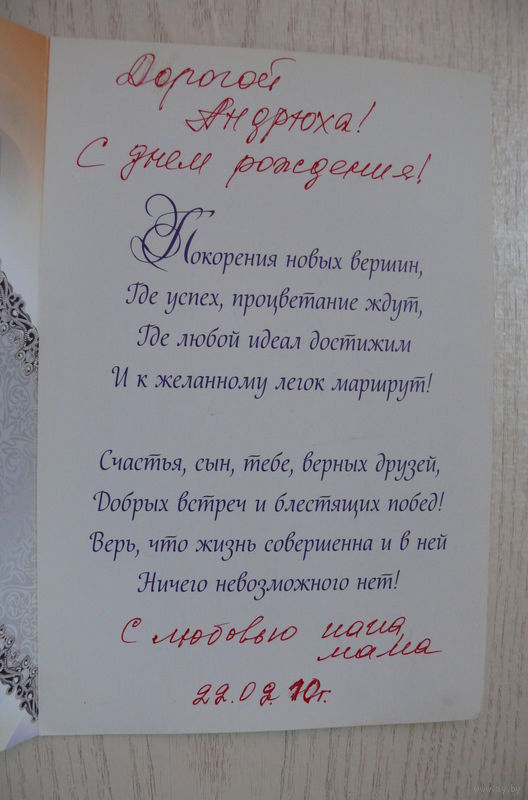 Дорогой
Андрюха!
С днем рождения!
Покорения новых вершин,
Где успех, процветание ждут,
Где любой идеал достижим
И к желанному легок маршрут!
Счастья, сын, тебе, верных друзей,
Добрых встреч и блестящих побед!
Верь, что жизнь совершенна и в ней
Ничего невозможного нет!
С любовью папа,
мама
22.02.10г.
www.ay.by